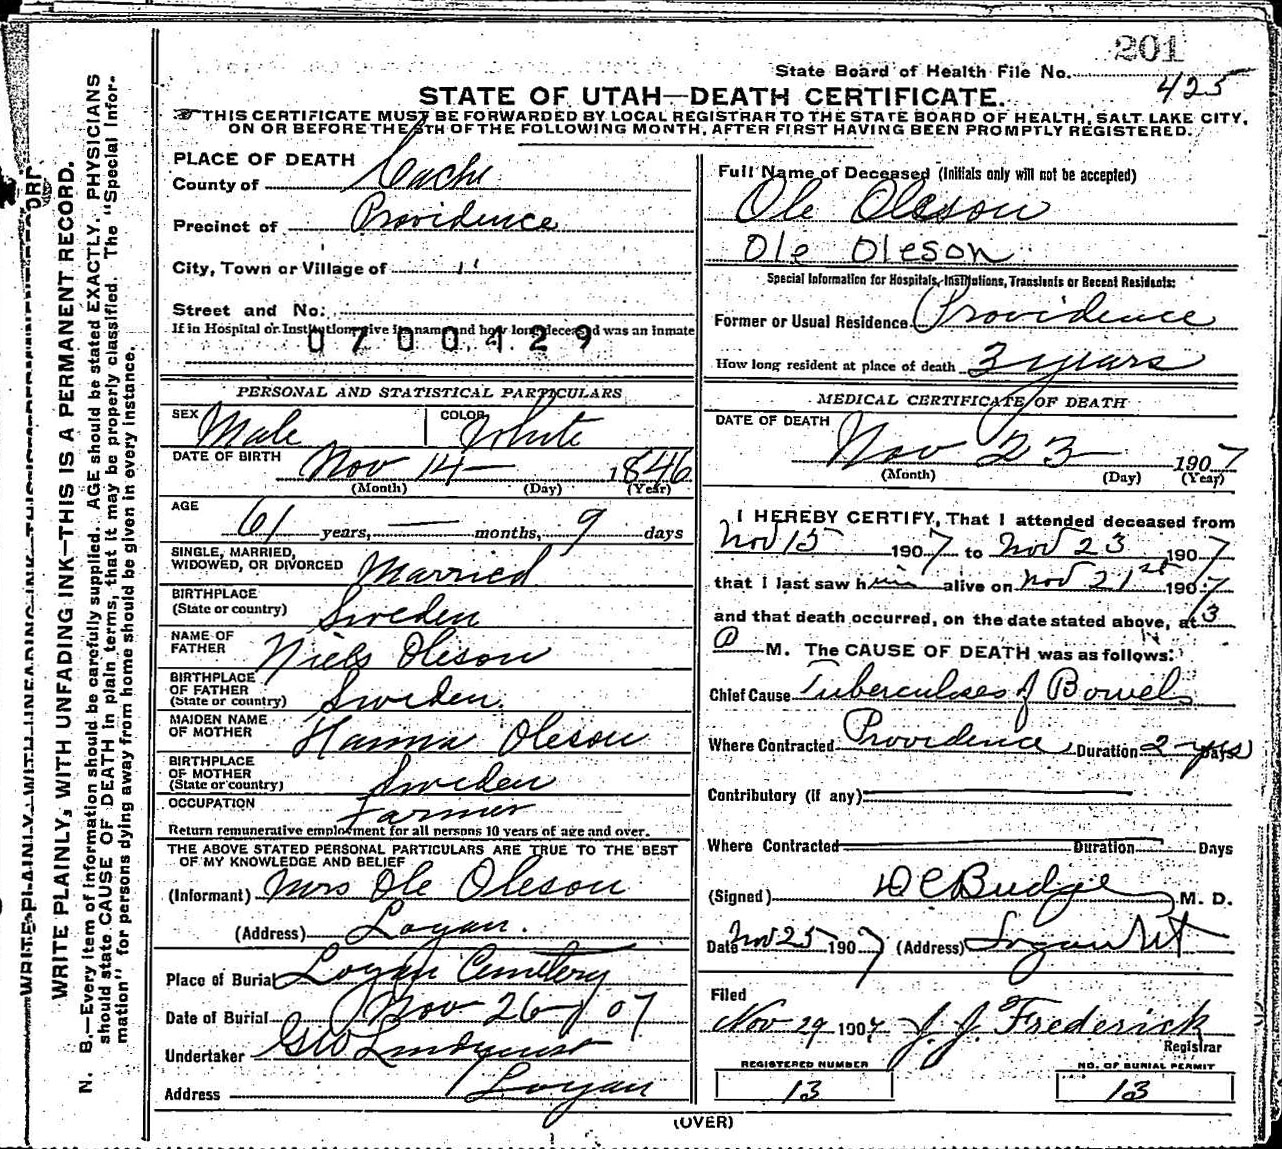 201
State Board of Health File No.
425
STATE OF UTAH—DEATH CERTIFICATE.
THIS CERTIFICATE MUST BE FORWARDED BY LOCAL REGISTRAR TO THE STATE BOARD OF HEALTH, SALT LAKE CITY,
ON OR BEFORE THE 5TH OF THE FOLLOWING MONTH, AFTER FIRST HAVING BEEN PROMPTLY REGISTERED.
WRITE PLAINLY, WITH UNFADING INK—THIS IS A PERMANENT RECORD.
N. B.—Every item of information should be carefully supplied. AGE should be stated EXACTLY. PHYSICIANS
should state CAUSE OF DEATH in plain terms, that it may be properly classified. The "Special Infor-
mation" for persons dying away from home should be given in every instance.
PLACE OF DEATH
County of Cache
Precinct of Providence
City, Town or Village of "
Street and No:
If in Hospital or Institution, give its name, and how long deceased was an inmate
0700429
PERSONAL AND STATISTICAL PARTICULARS
SEX Male COLOR White
DATE OF BIRTH Nov 14 — 1846
(Month) (Day) (Year)
AGE
61 years, — months, 9 days
SINGLE, MARRIED,
WIDOWED, OR DIVORCED Married
BIRTHPLACE
(State or country) Sweden
NAME OF
FATHER Niels Oleson
BIRTHPLACE
OF FATHER
(State or country) Sweden.
MAIDEN NAME
OF MOTHER Hanna Oleson
BIRTHPLACE
OF MOTHER
(State or country) Sweden
OCCUPATION Farmer
Return remunerative employment for all persons 10 years of age and over.
THE ABOVE STATED PERSONAL PARTICULARS ARE TRUE TO THE BEST
OF MY KNOWLEDGE AND BELIEF
(Informant) Mrs Ole Oleson
(Address) Logan.
Place of Burial Logan Cemetery
Date of Burial Nov 26 / 07
Undertaker G W Lindquist
Address Logan
Full Name of Deceased (Initials only will not be accepted)
Ole Oleson
Ole Oleson
Special Information for Hospitals, Institutions, Transients or Recent Residents:
Former or Usual Residence Providence
How long resident at place of death 3 years
MEDICAL CERTIFICATE OF DEATH
DATE OF DEATH
Nov 23 — 1907
(Month) (Day) (Year)
I HEREBY CERTIFY, That I attended deceased from
Nov 15 1907 to Nov 23 1907
that I last saw him alive on Nov 21st 1907
and that death occurred, on the date stated above, at 3
P M. The CAUSE OF DEATH was as follows:
Chief Cause Tuberculoses of Bowels
Where Contracted Providence Duration 2 yrs Days
Contributory (if any)
Where Contracted Duration Days
(Signed) D C Budge M. D.
Date Nov 25 1907 (Address) Logan Ut
Filed
Nov 29 1907 J. J. Frederick
Registrar
REGISTERED NUMBER
13
NO. OF BURIAL PERMIT
13
(OVER)